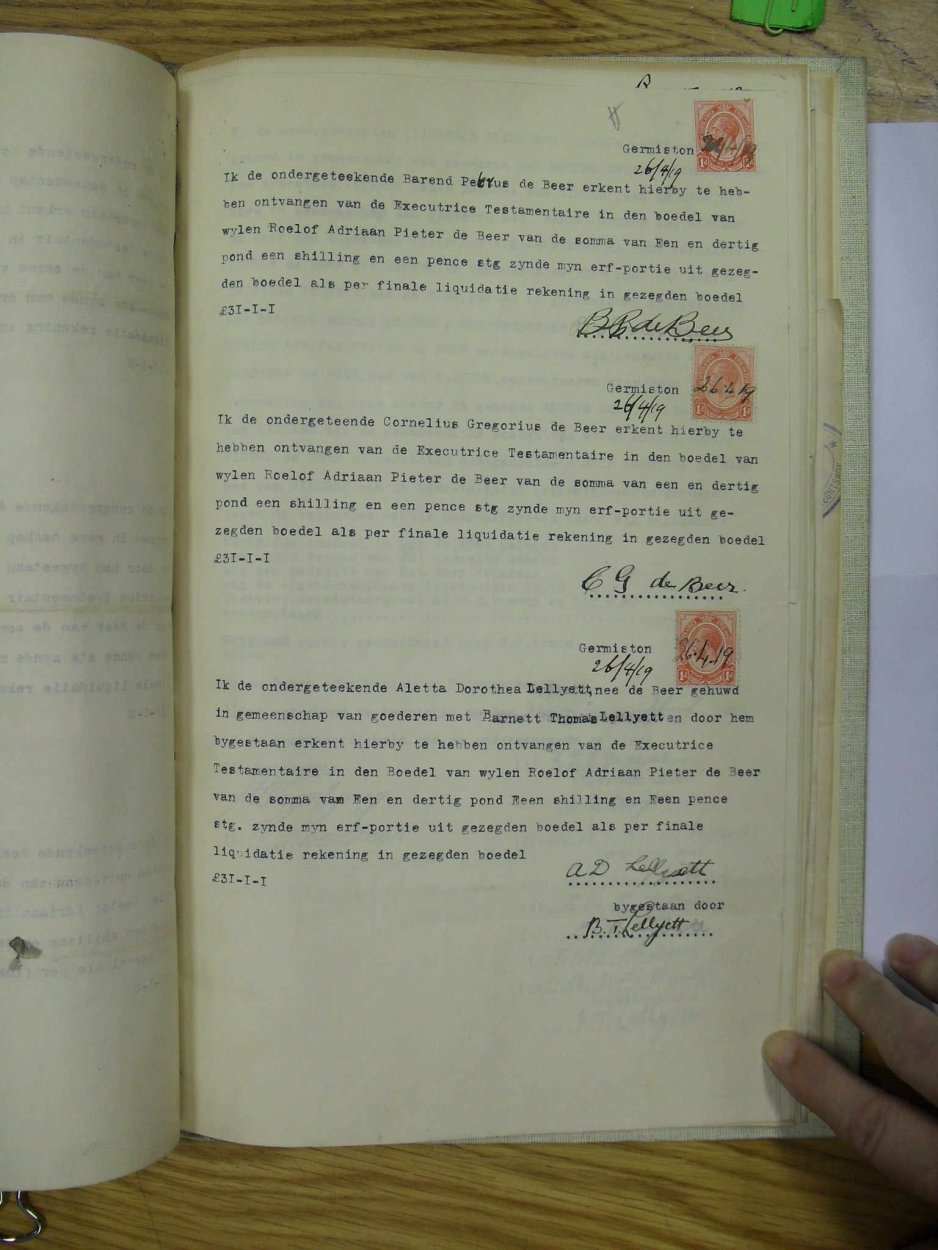 Germiston 26/4/19
26/4/19
Ik de ondergeteekende Barend Petrus de Beer erkent hierby te heb-
ben ontvangen van de Executrice Testamentaire in den boedel van
wylen Roelof Adriaan Pieter de Beer van de somma van Een en dertig
pond een shilling en een pence stg zynde myn erf-portie uit gezeg-
den boedel als per finale liquidatie rekening in gezegden boedel
£3I-I-I
B P de Beer
Germiston 26.4.19
26/4/19
Ik de ondergeteende Cornelius Gregorius de Beer erkent hierby te
hebben ontvangen van de Executrice Testamentaire in den boedel van
wylen Roelof Adriaan Pieter de Beer van de somma van een en dertig
pond een shilling en een pence stg zynde myn erf-portie uit ge-
zegden boedel als per finale liquidatie rekening in gezegden boedel
£3I-I-I
C G de Beer.
Germiston 26.4.19
26/4/19
Ik de ondergeteekende Aletta Dorothea Lellyett,nee de Beer gehuwd
in gemeenschap van goederen met Barnett Thomas Lellyett en door hem
bygestaan erkent hierby te hebben ontvangen van de Executrice
Testamentaire in den Boedel van wylen Roelof Adriaan Pieter de Beer
van de somma vam Een en dertig pond Eeen shilling en Eeen pence
stg. zynde myn erf-portie uit gezegden boedel als per finale
liquidatie rekening in gezegden boedel
£3I-I-I
A D Lellyett
bygestaan door
B. T. Lellyett